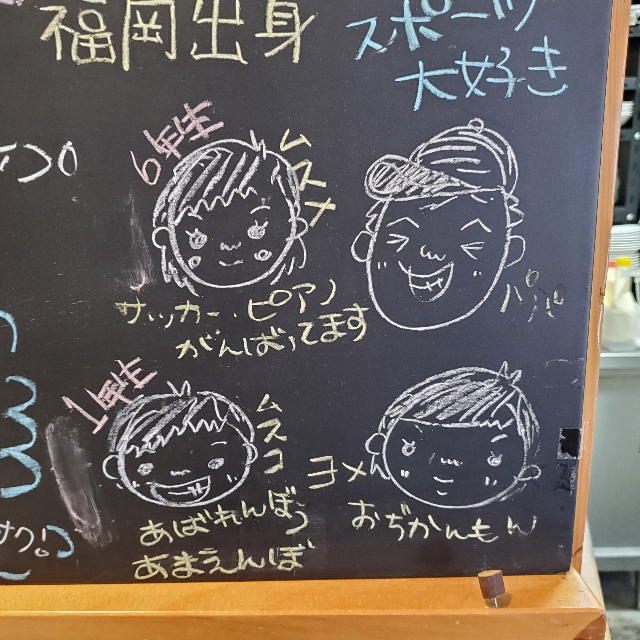 福岡出身
スポーツ
大好き
6年生
ムスメ
サッカー・ピアノ
がんばってます
パパ
1年生
ムスコ
あばれんぼう
あまえんぼ
ヨメ
おぢかんもん
サク!